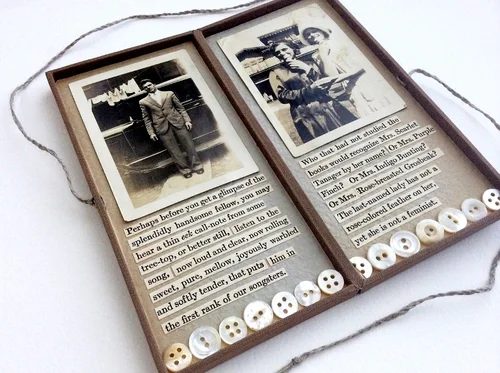 Perhaps before you get a glimpse of the
splendidly handsome fellow, you may
hear a thin eek call-note from some
tree-top, or better still, listen to the
song, now loud and clear, now rolling
sweet, pure, mellow, joyously warbled
and softly tender, that puts him in
the first rank of our songsters.
Who that had not studied the
books would recognize Mrs. Scarlet
Tanager by her name? Or Mrs. Purple
Finch? Or Mrs. Indigo Bunting?
Or Mrs. Rose-breasted Grosbeak?
The last-named lady has not a
rose-colored feather on her,
yet she is not a feminist.